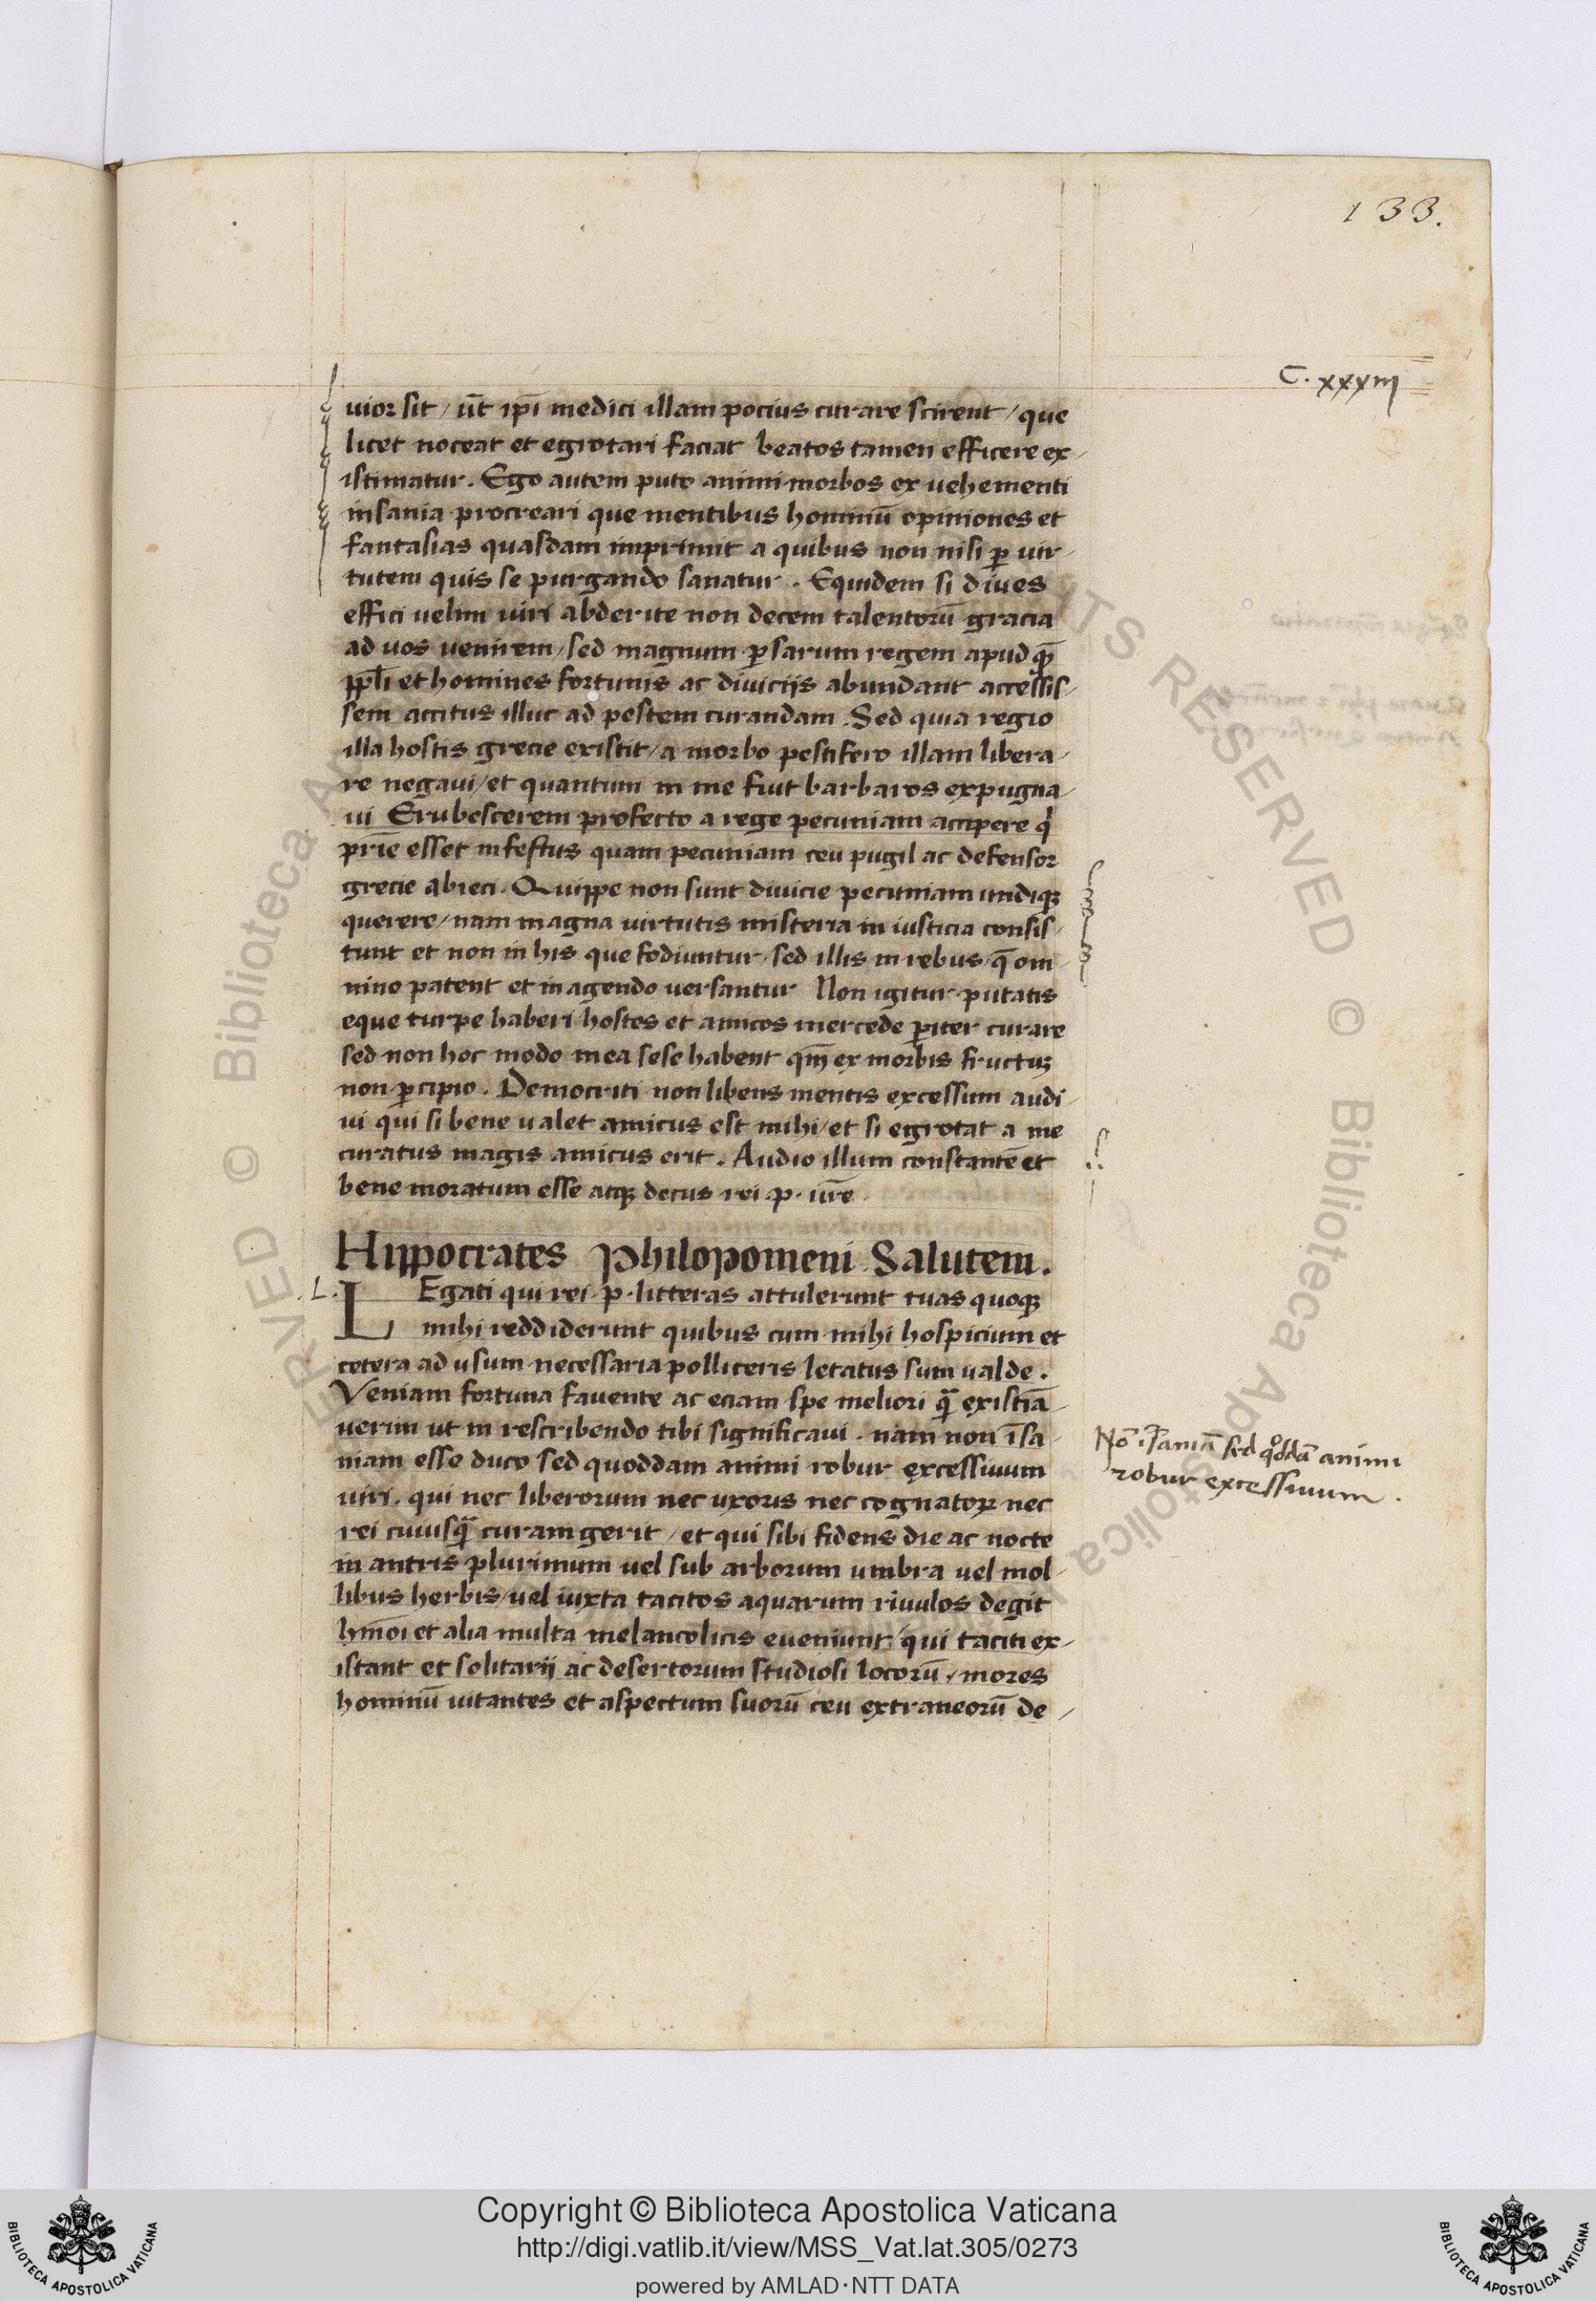 133.
C. xxxiii
uior sit / ut̄ ip̄i medici illam pocius curare scirent / que
licet noceat et egrotari faciat beatos tamen efficere ex-
istimatur. Ego autem puto animi morbos ex vehementi
insania procreari que mentibus hominū opiniones et
fantasias quasdam imprimit a quibus non nisi ꝑ vir-
tutem quis se purgando sanatur. Equidem si dives
effici velim viri abderite non decem talentorū gracia
ad vos venirem / sed magnum ꝑsarum regem apud quē
pp̄li et homines fortunis ac diviciis abundant accessis-
sem accitus illuc ad pestem curandam. Sed quia regio
illa hostis grecie existit / a morbo pestifero illam libera-
re negavi / et quantum in me fuit barbaros expugna-
ui Erubescerem profecto a rege pecuniam accipere qͥ
pr̄ie esset infestus quam pecuniam ceu pugil ac defensor
grecie abieci. Quippe non sunt divicie pecuniam undiqꝫ
querere / nam magna virtutis misteria in iusticia consis-
tunt et non in his que fodiuntur, sed illis in rebus q̄ om-
nino patent et in agendo versantur Non igitur putatis
eque turpe haberi hostes et amicos mercede ꝑiter curare
sed non hoc modo mea sese habent qm̄ ex morbis fructuꝫ
non ꝑcipio. Democriti non libens mentis excessum audi-
ui qui si bene valet amicus est mihi / et si egrotat a me
curatus magis amicus erit. Audio illum constantē et
bene moratum esse atqꝫ decus rei .p. vr̄e.
Hippocrates Philopomeni Salutem.
L.
LEgati qui rei .p. litteras attulerunt tuas quoqꝫ
mihi reddiderunt quibus cum mihi hospicium et
cetera ad usum necessaria polliceris letatus sum valde.
Veniam fortuna favente ac eciam spe meliori quā existiā-
uerim ut in rescribendo tibi significavi. nam non īsa-
niam esse duco sed quoddam animi robur excessivum
viri. qui nec liberorum nec uxoris nec cognatoꝝ nec
rei cuiusquā curam gerit / et qui sibi fidens die ac nocte
in antris plurimum vel sub arborum umbra vel mol-
libus herbis / vel iuxta tacitos aquarum rivulos degit
hm̄oi et alia multa melancolicis eveniunt / qui taciti ex-
istant et solitarii ac desertorum studiosi locorū, mores
hominū vitantes et aspectum suorū ceu extraneorū de-
Nō īsaniā sed qͦddā animi
robur excessivum.
Copyright © Biblioteca Apostolica Vaticana
http://digi.vatlib.it/view/MSS_Vat.lat.305/0273
powered by AMLAD·NTT DATA
BIBLIOTECA APOSTOLICA VATICANA
BIBLIOTECA APOSTOLICA VATICANA